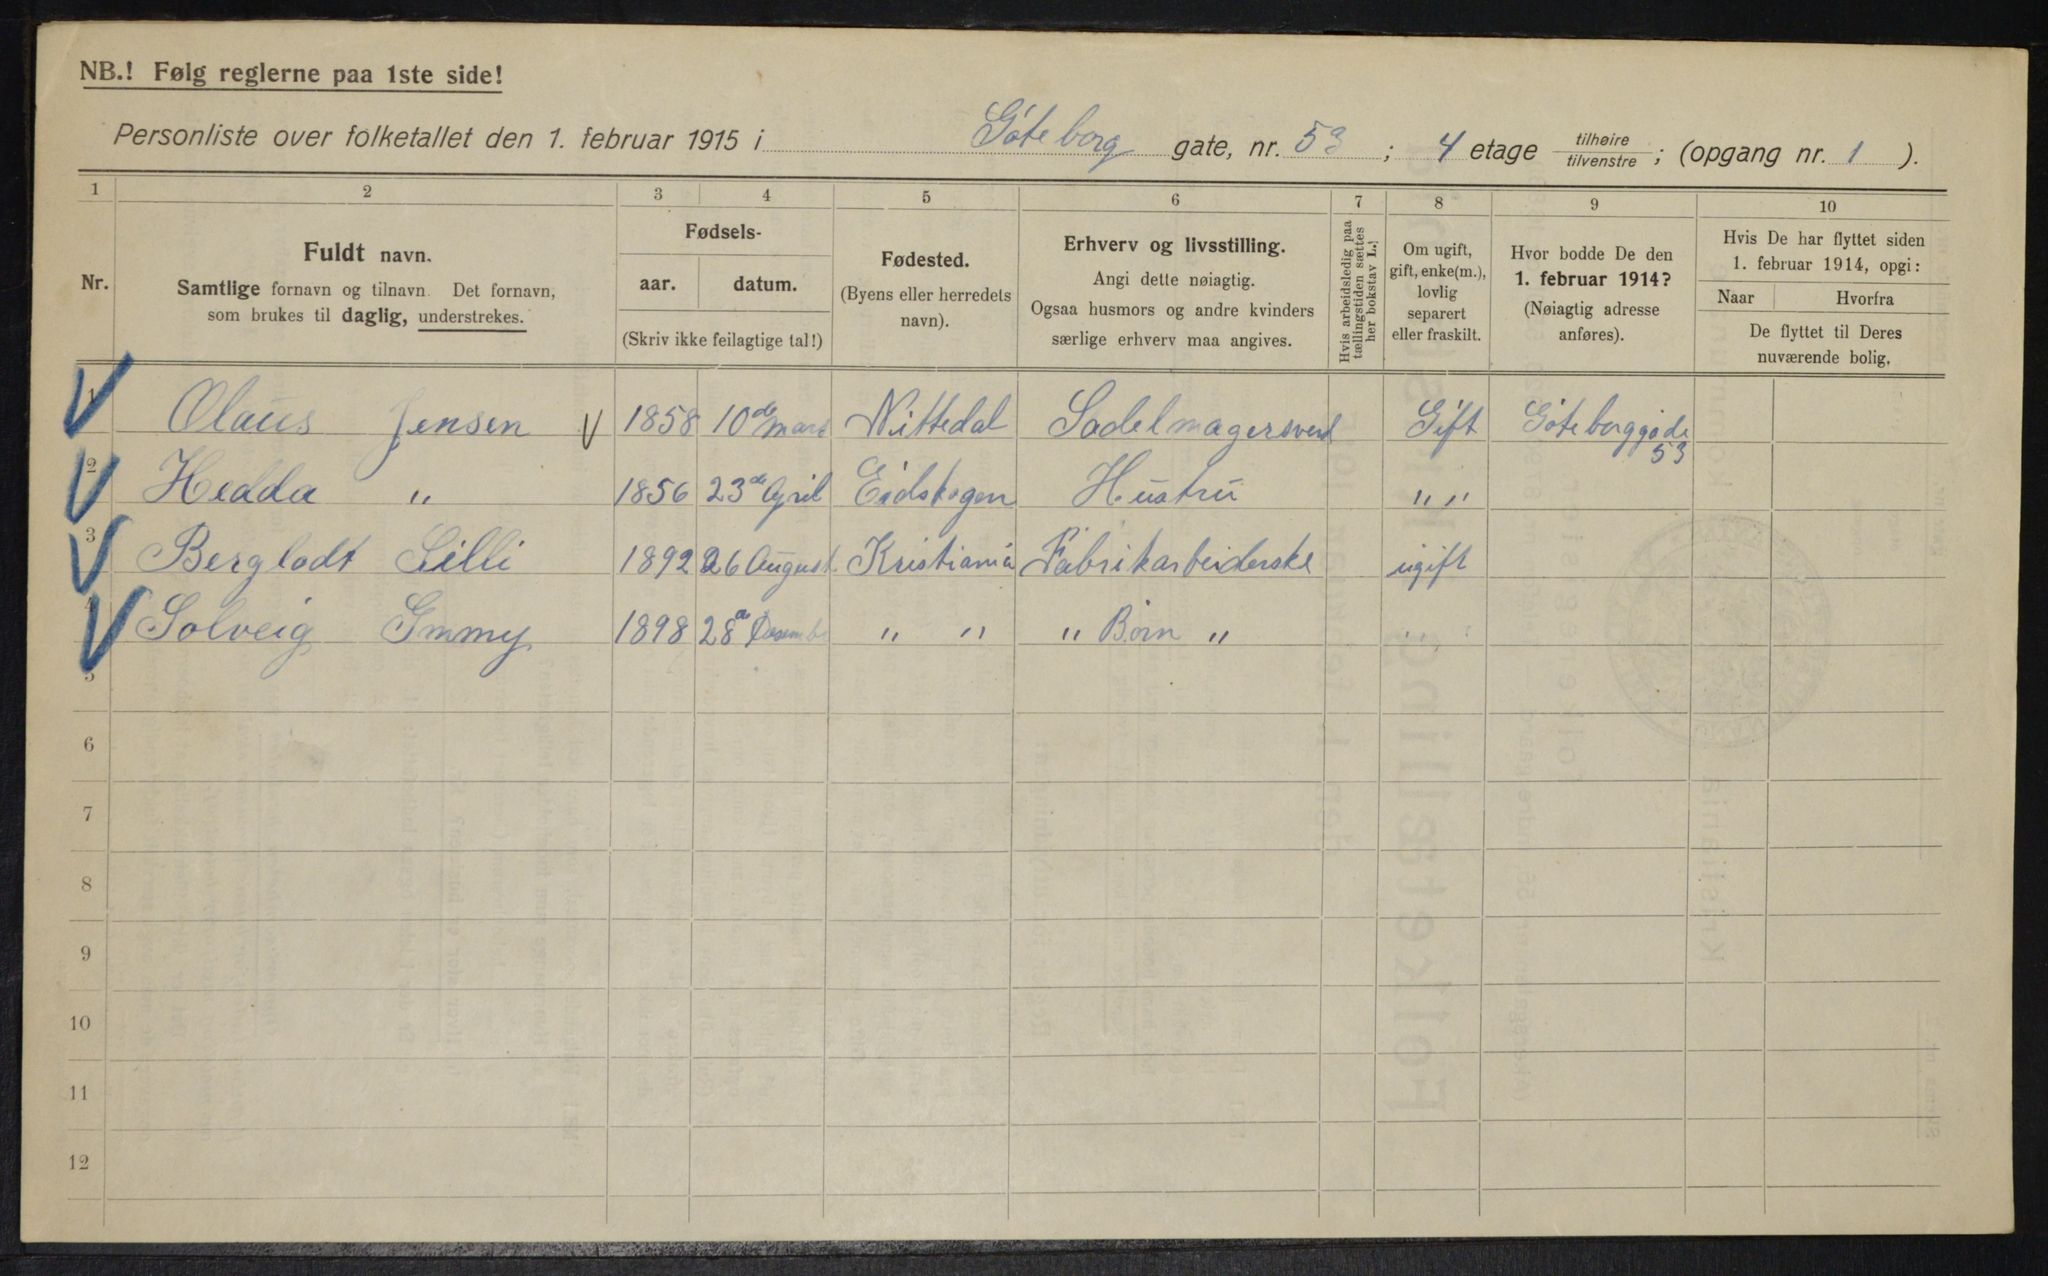 NB.! Følg reglerne paa 1ste side!
Personliste over folketallet den 1. februar 1915 i Göteborg gate, nr. 53 ; 4 etage tilhøire / tilvenstre ; (opgang nr. 1 ).
1 2 3 4 5 6 7 8 9 10
Nr.
Fuldt navn.
Samtlige fornavn og tilnavn. Det fornavn,
som brukes til daglig, understrekes.
Fødsels-
aar. datum.
(Skriv ikke feilagtige tal!)
Fødested.
(Byens eller herredets
navn).
Erhverv og livsstilling.
Angi dette nøiagtig.
Ogsaa husmors og andre kvinders
særlige erhverv maa angives.
Hvis arbeidsledig paa
tællingstiden sættes
her bokstav L.
Om ugift,
gift, enke(m.),
lovlig
separert
eller fraskilt.
Hvor bodde De den
1. februar 1914?
(Nøiagtig adresse
anføres).
Hvis De har flyttet siden
1. februar 1914, opgi:
Naar Hvorfra
De flyttet til Deres
nuværende bolig.
1 Olaus Jensen 1858 10de mars Nittedal Sadelmagersvend Gift Göteborggade 53
2 Hedda " 1856 23de April Eidskogen Hustru " "
3 Berglodt Lilli 1892 26 August Kristiania Fabrikarbeiderske ugift
4 Solveig Emmy 1898 28de " " " Börn " " "
5
6
7
8
9
10
11
12